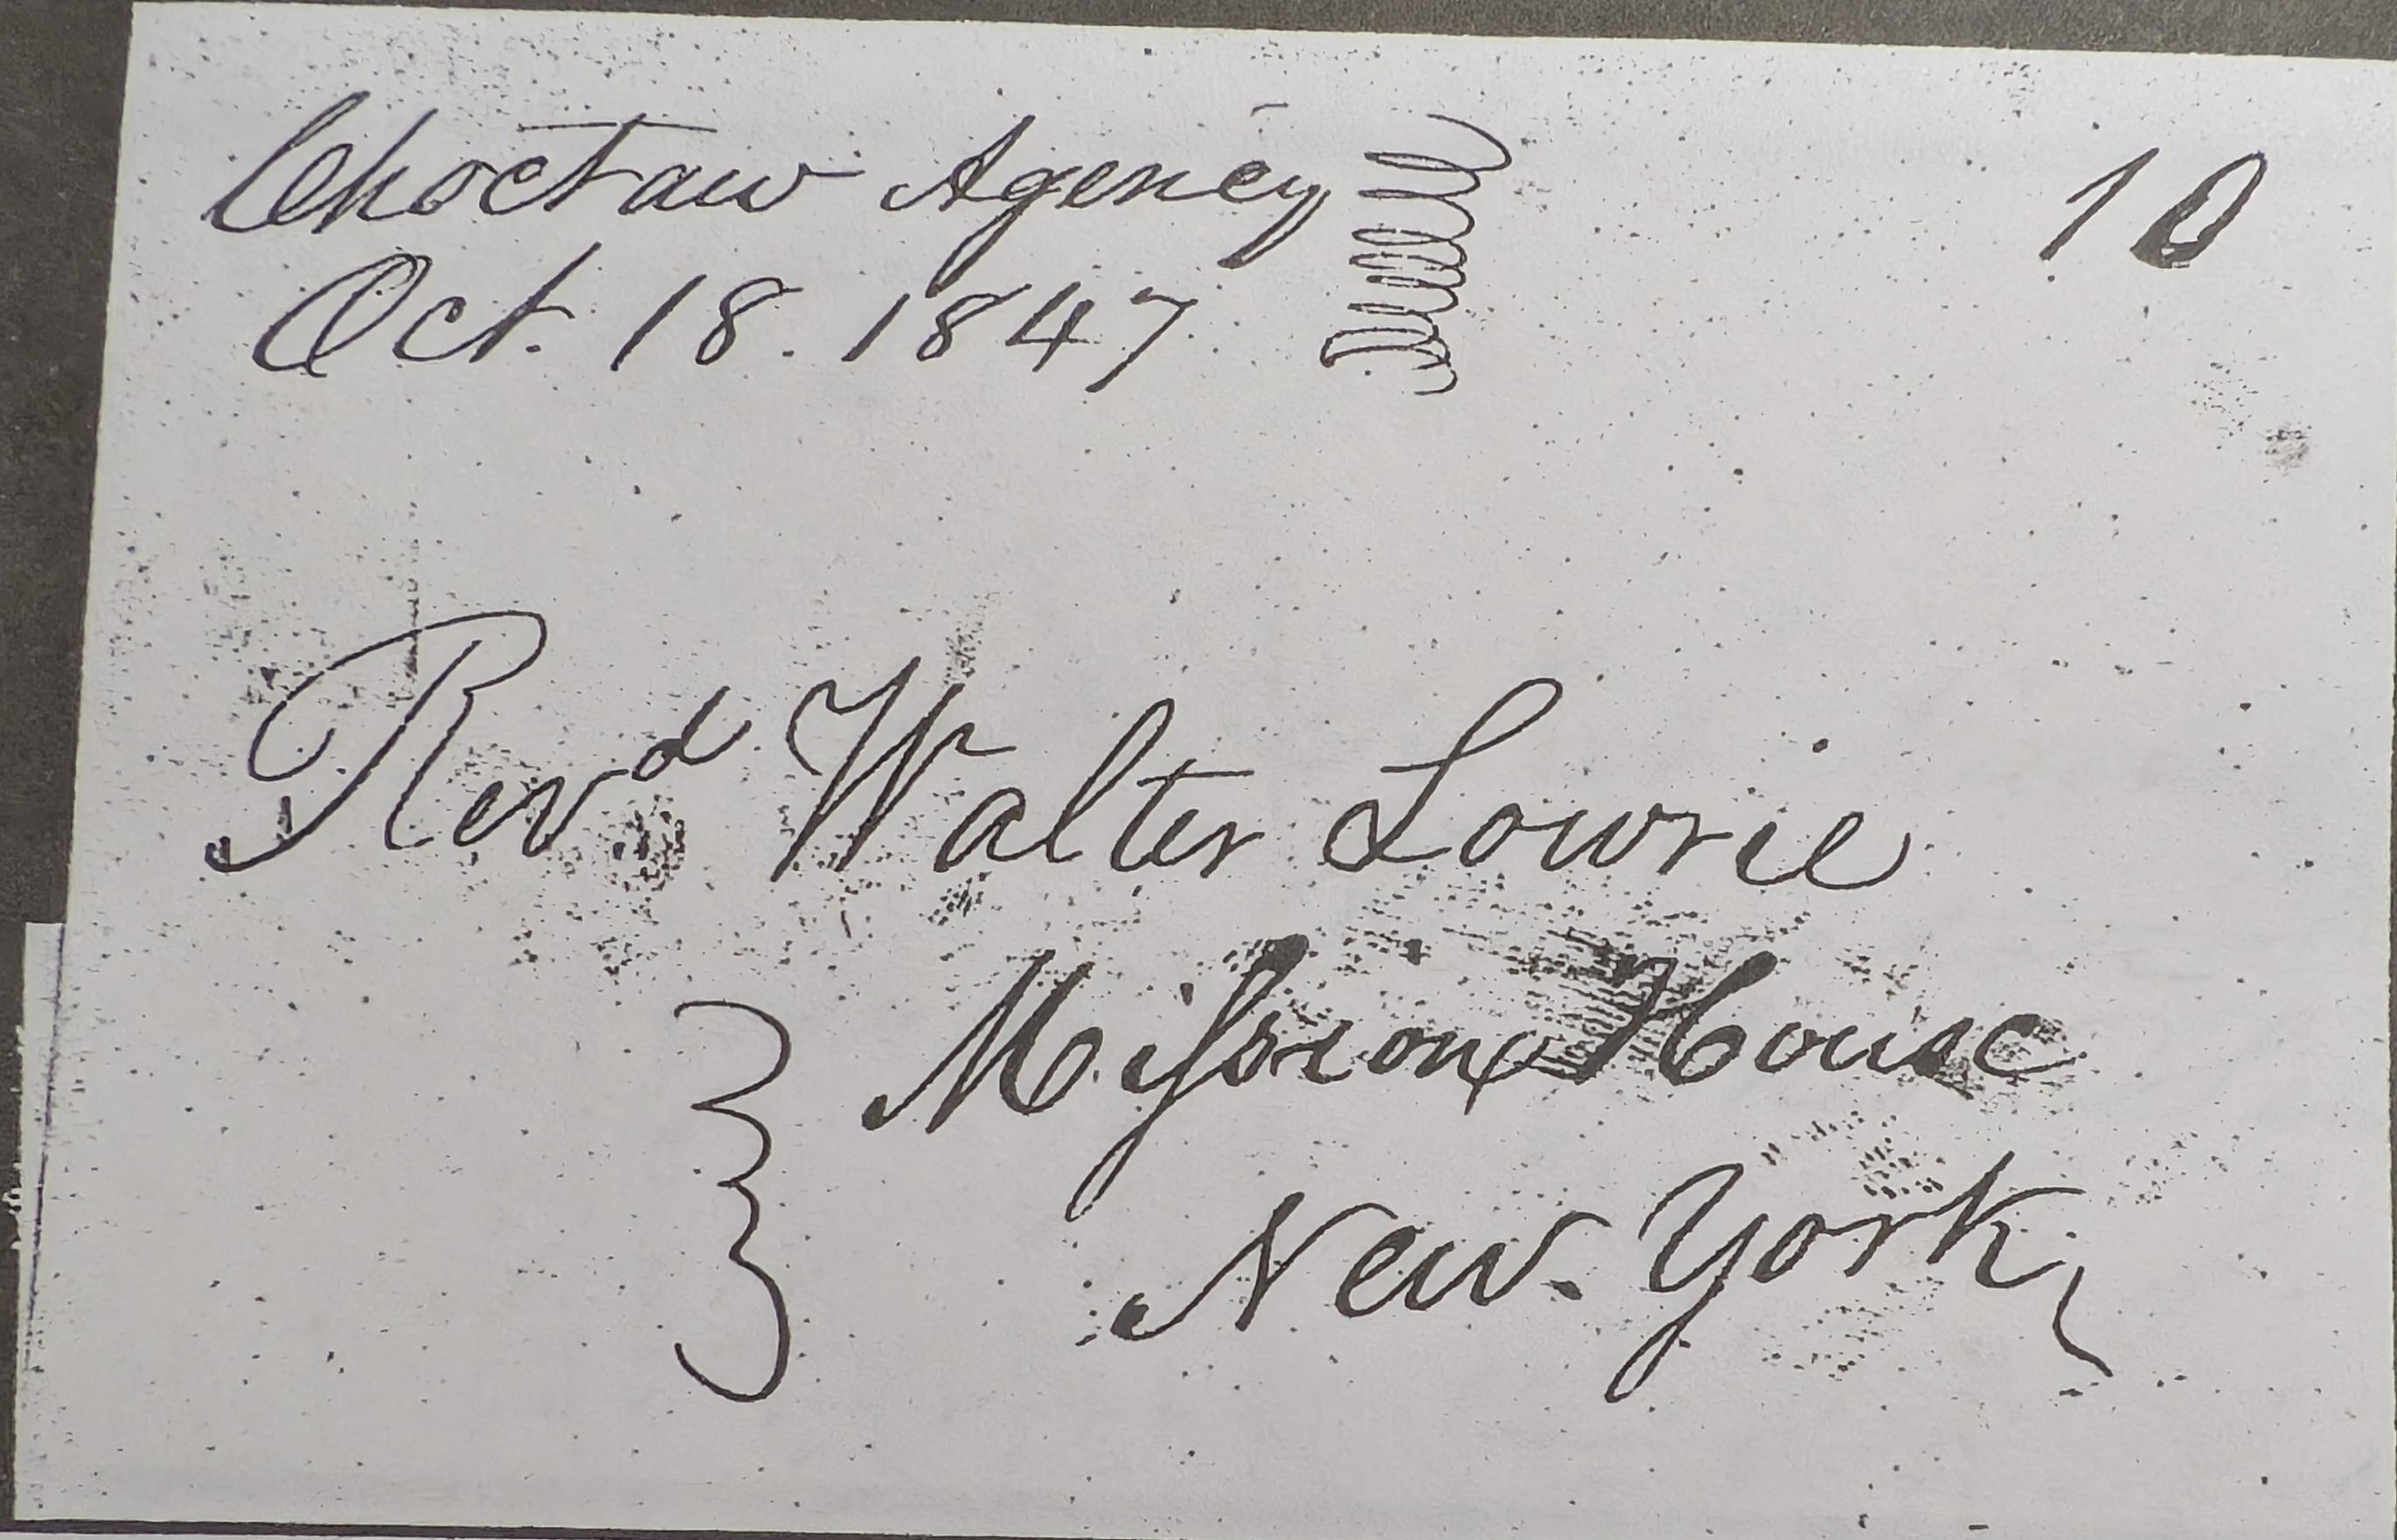 Choctaw Agency
Oct. 18. 1847
10
Revd Walter Lowrie
Mission House
New. York